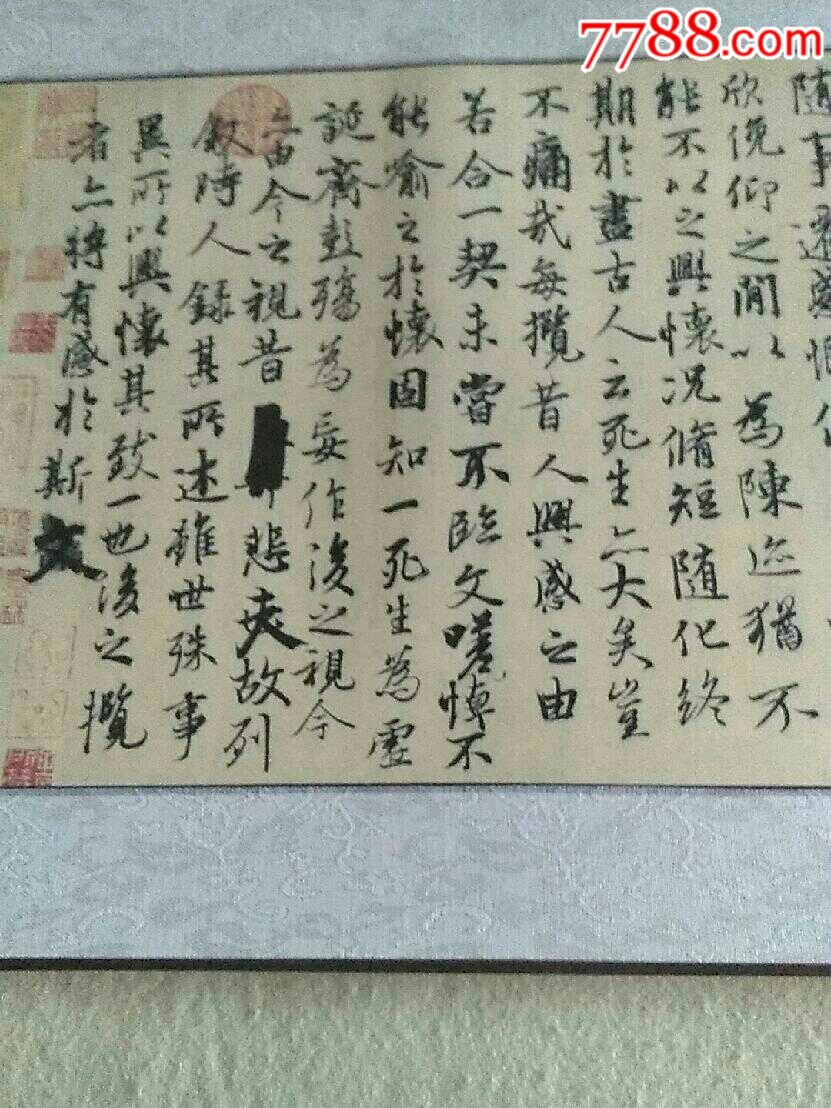 7788.com
隨事遷感慨
欣俛仰之閒以為陳迹猶不
能不以之興懷況脩短隨化終
期於盡古人云死生亦大矣豈
不痛哉每攬昔人興感之由
若合一契未嘗不臨文嗟悼不
能喻之於懷固知一死生為虛
誕齊彭殤為妄作後之視今
亦由今之視昔悲夫故列
敘時人錄其所述雖世殊事
異所以興懷其致一也後之攬
者亦將有感於斯文